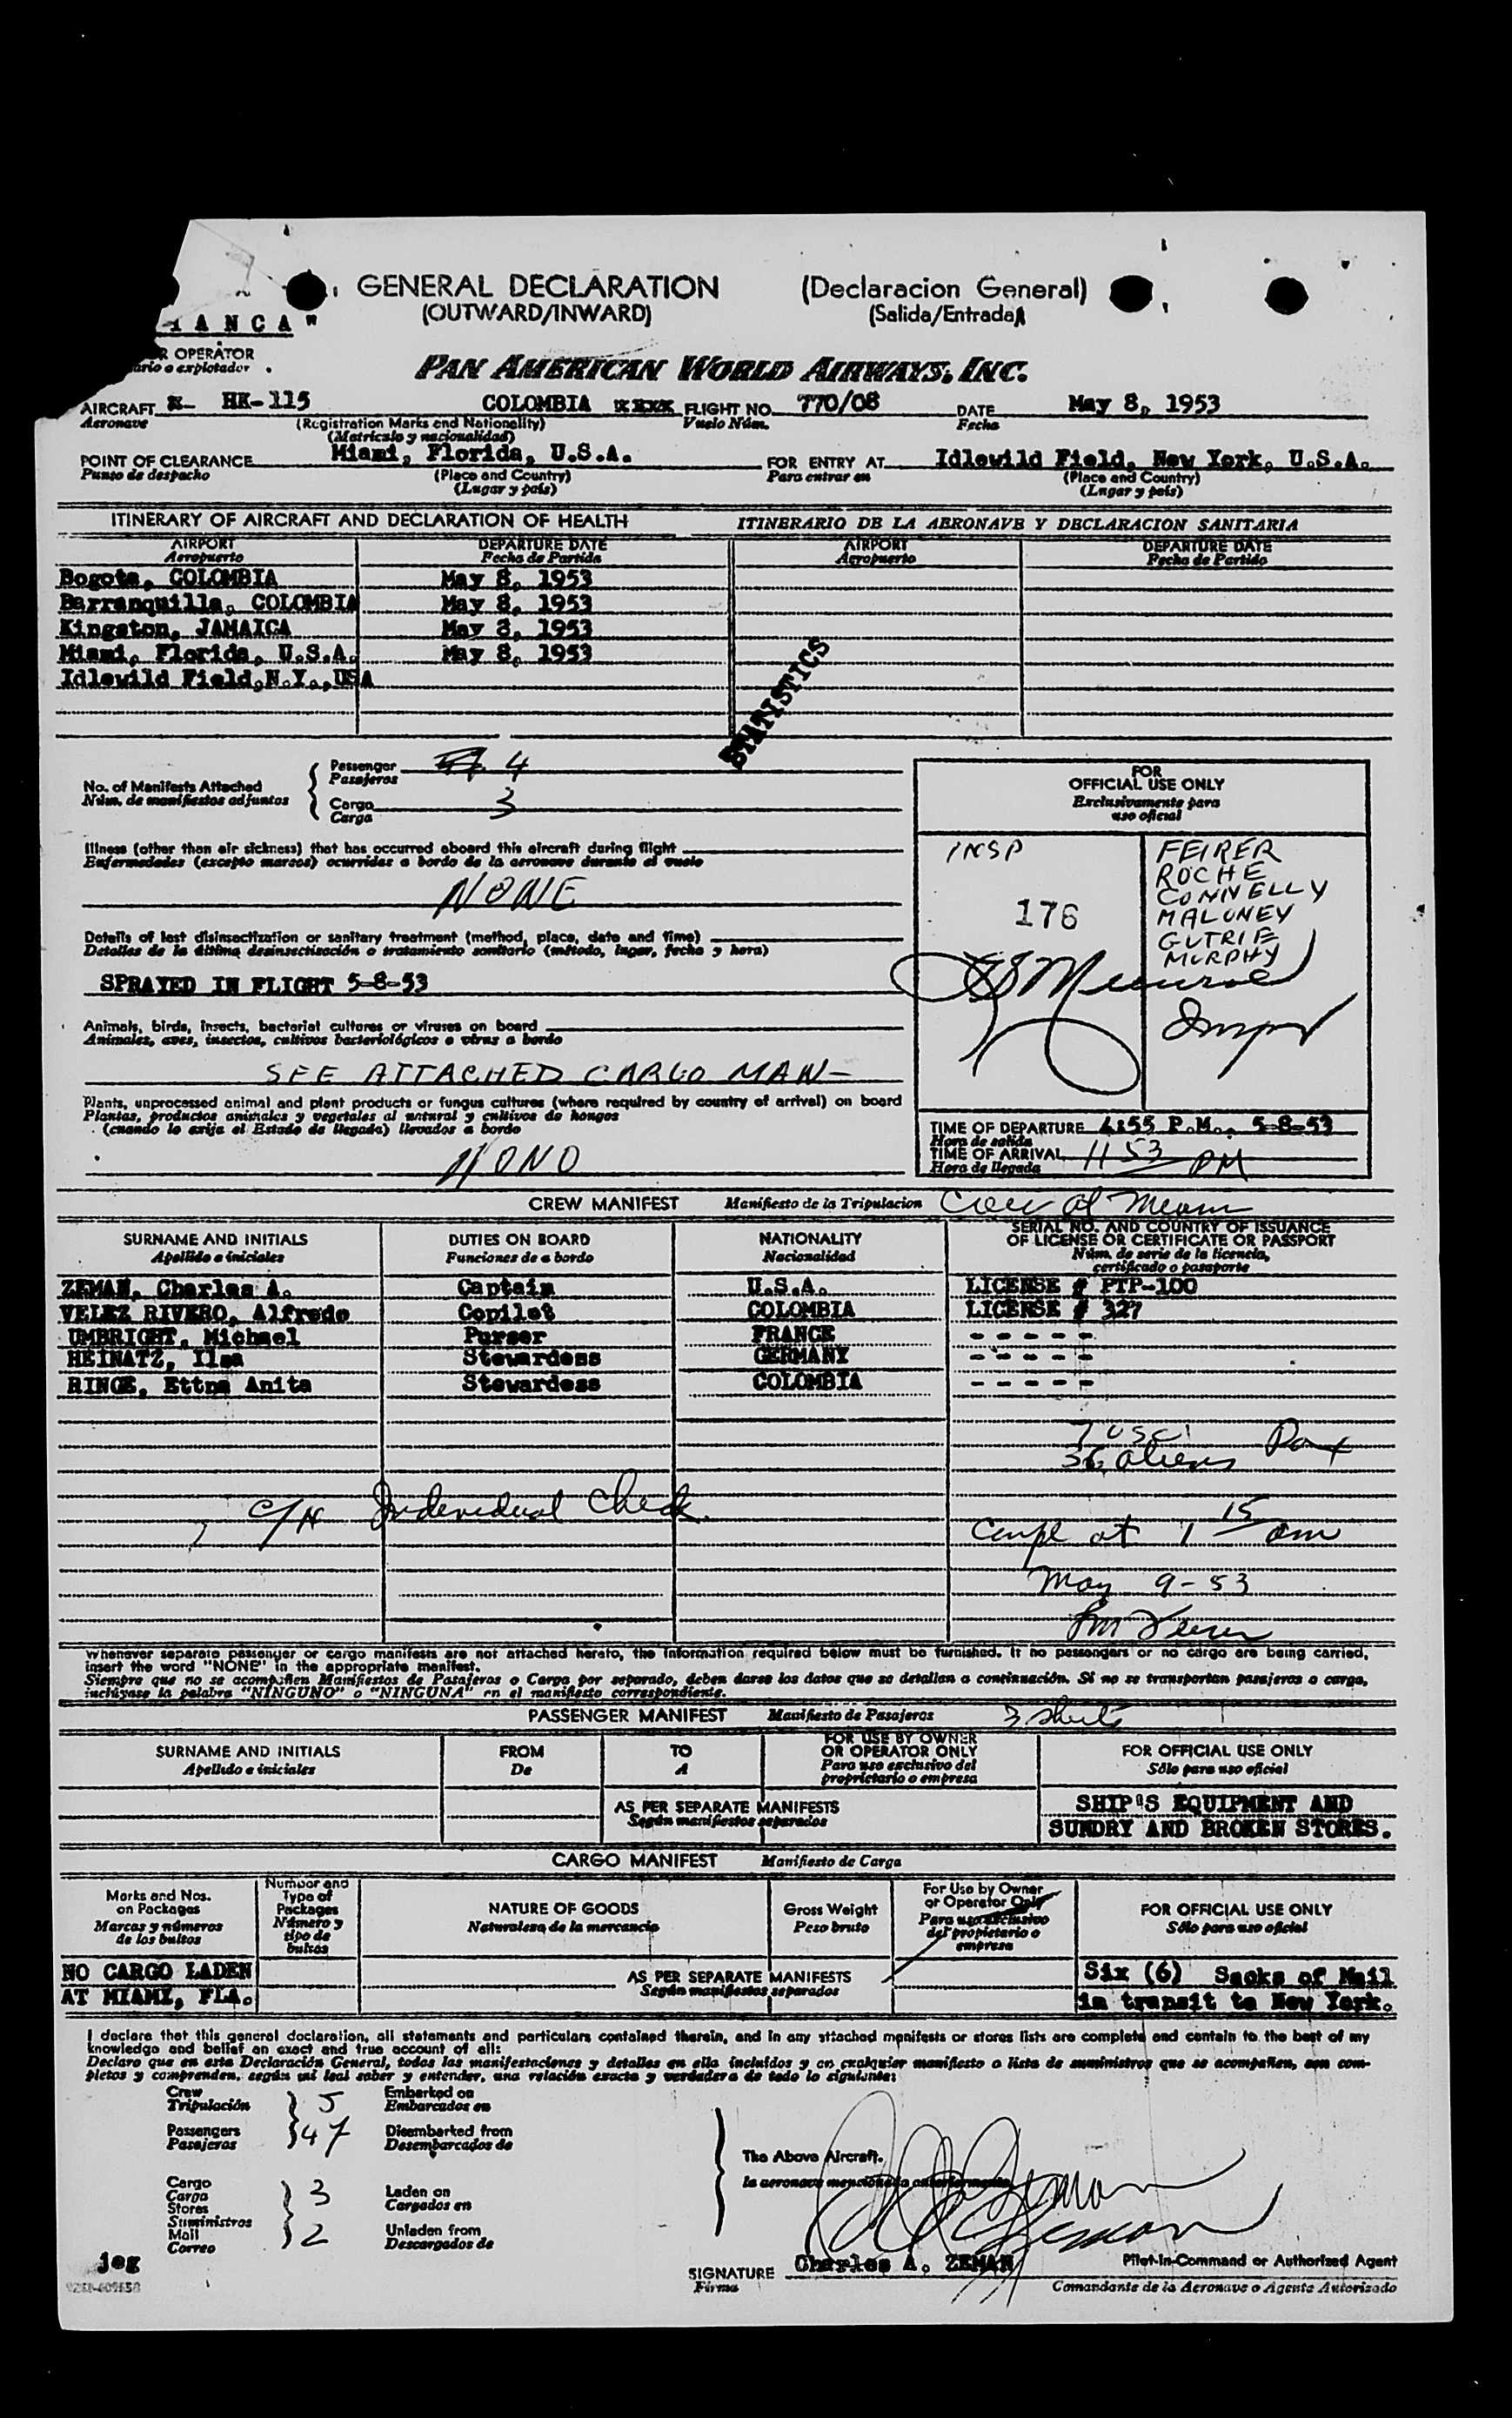 GENERAL DECLARATION (Declaracion General)
(OUTWARD/INWARD) (Salida/Entrada)
IANCA"
R OPERATOR
ario o explotador
PAN AMERICAN WORLD AIRWAYS, INC.
AIRCRAFT HK-115 COLOMBIA FLIGHT NO. 770/08 DATE May 8, 1953
Aeronave (Registration Marks and Nationality) Vuelo Núm. Fecha
(Matricula y nacionalidad)
POINT OF CLEARANCE Miami, Florida, U.S.A. FOR ENTRY AT Idlewild Field, New York, U.S.A.
Punto de despacho (Place and Country) Para entrar en (Place and Country)
(Lugar y país) (Lugar y país)
ITINERARY OF AIRCRAFT AND DECLARATION OF HEALTH ITINERARIO DE LA AERONAVE Y DECLARACION SANITARIA
AIRPORT DEPARTURE DATE AIRPORT DEPARTURE DATE
Aeropuerto Fecha de Partida Aeropuerto Fecha de Partida
Bogota, COLOMBIA May 8, 1953
Barranquilla, COLOMBIA May 8, 1953
Kingston, JAMAICA May 8, 1953
Miami, Florida, U.S.A. May 8, 1953
Idlewild Field,N.Y.,USA
STATISTICS
No. of Manifests Attached Passenger 4
Núm. de manifiestos adjuntos Pasajeros
Cargo 3
Carga
FOR
OFFICIAL USE ONLY
Exclusivamente para
uso oficial
Illness (other than air sickness) that has occurred aboard this aircraft during flight
Enfermedades (excepto mareos) ocurridas a bordo de la aeronave durante el vuelo
NONE
Details of last disinsectization or sanitary treatment (method, place, date and time)
Detalles de la última desinsectización o tratamiento sanitario (método, lugar, fecha y hora)
SPRAYED IN FLIGHT 5-8-53
Animals, birds, insects, bacterial cultures or viruses on board
Animales, aves, insectos, cultivos bacteriológicos o virus a bordo
SEE ATTACHED CARGO MAN-
Plants, unprocessed animal and plant products or fungus cultures (where required by country of arrival) on board
Plantas, productos animales y vegetales al natural y cultivos de hongos
(cuando lo exija el Estado de llegada) llevados a bordo
NONO
INSP
176
FEIRER
ROCHE
CONNELLY
MALONEY
GUTRIE
MURPHY
TIME OF DEPARTURE 4:55 P.M., 5-8-53
Hora de salida
TIME OF ARRIVAL 11 53 PM
Hora de llegada
CREW MANIFEST Manifiesto de la Tripulacion
SURNAME AND INITIALS DUTIES ON BOARD NATIONALITY SERIAL NO. AND COUNTRY OF ISSUANCE
OF LICENSE OR CERTIFICATE OR PASSPORT
Apellido e iniciales Funciones de a bordo Nacionalidad Núm. de serie de la licencia,
certificado o pasaporte
ZEMAN, Charles A. Captain U.S.A. LICENSE # PTP-100
VELEZ RIVERO, Alfredo Copilot COLOMBIA LICENSE # 327
UMBRIGHT, Michael Purser FRANCE - - - - -
HEINATZ, Ilsa Stewardess GERMANY - - - - -
RINGE, Ettna Anita Stewardess COLOMBIA - - - - -
7 USC
36 aliens Pax
Individual Check
Compl at 1 15 am
May 9-53
Whenever separate passenger or cargo manifests are not attached hereto, the information required below must be furnished. If no passengers or no cargo are being carried,
insert the word "NONE" in the appropriate manifest.
Siempre que no se acompañen Manifiestos de Pasajeros o Carga por separado, deben darse los datos que se detallan a continuación. Si no se transportan pasajeros o carga,
inclúyase la palabra "NINGUNO" o "NINGUNA" en el manifiesto correspondiente.
PASSENGER MANIFEST Manifiesto de Pasajeros 3 sheets
SURNAME AND INITIALS FROM TO FOR USE BY OWNER OR OPERATOR ONLY FOR OFFICIAL USE ONLY
Apellido e iniciales De A Para uso exclusivo del propietario o empresa Sólo para uso oficial
AS PER SEPARATE MANIFESTS
Según manifiestos separados
SHIP'S EQUIPMENT AND
SUNDRY AND BROKEN STORES.
CARGO MANIFEST Manifiesto de Carga
Marks and Nos. on Packages
Marcas y números de los bultos
Number and Type of Packages
Número y tipo de bultos
NATURE OF GOODS
Naturaleza de la mercancía
Gross Weight
Peso bruto
For Use by Owner or Operator Only
Para uso exclusivo del propietario o empresa
FOR OFFICIAL USE ONLY
Sólo para uso oficial
NO CARGO LADEN
AT MIAMI, FLA.
AS PER SEPARATE MANIFESTS
Según manifiestos separados
Six (6) Sacks of Mail
in transit to New York.
I declare that this general declaration, all statements and particulars contained therein, and in any attached manifests or stores lists are complete and contain to the best of my
knowledge and belief an exact and true account of all:
Declaro que en esta Declaración General, todas las manifestaciones y detalles en ella incluídos y en cualquier manifiesto o lista de suministros que se acompañen, son com-
pletos y comprenden, según mi leal saber y entender, una relación exacta y verdadera de todo lo siguiente:
Crew 5 Embarked on
Tripulación Embarcados en
Passengers 47 Disembarked from
Pasajeros Desembarcados de
The Above Aircraft.
la aeronave mencionada anteriormente
Cargo
Carga 3 Laden on
Stores Cargados en
Suministros
Mail 2 Unladen from
Correo Descargados de
jeg
SIGNATURE Charles A. ZEMAN Pilot-in-Command or Authorized Agent
Firma Comandante de la Aeronave o Agente Autorizado